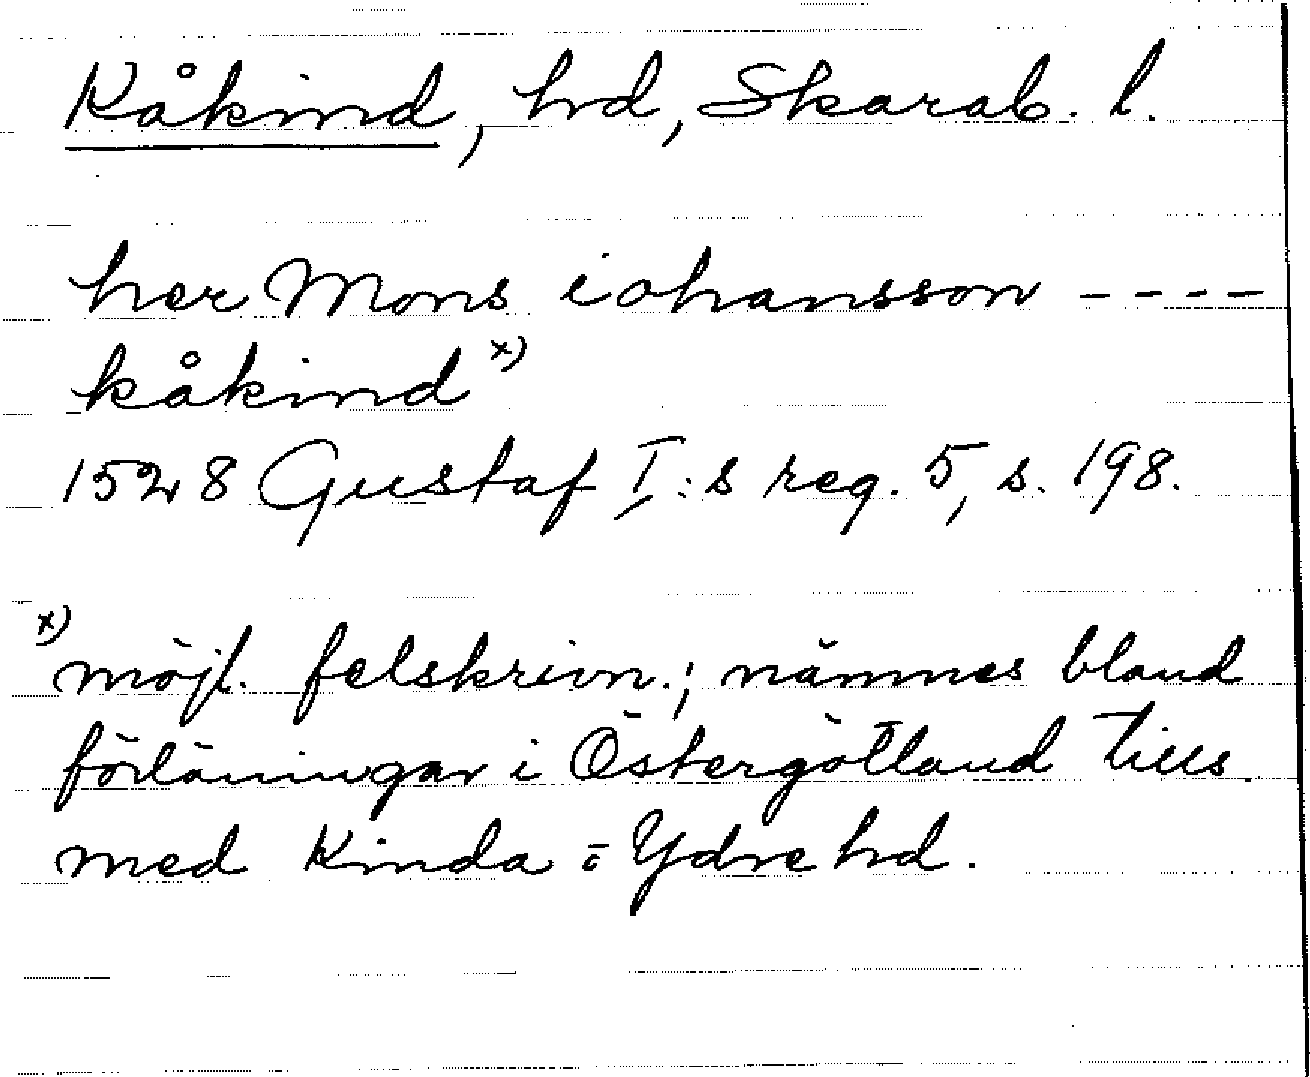 Kåkind, hd, Skarab. l.
her Mons iohansson ----
kåkind x)
1528 Gustaf I:s reg. 5, s. 198.
x) möjl. felskrivn.; nämnes bland
förläningar i Östergötland tills.
med Kinda o Ydre hd.